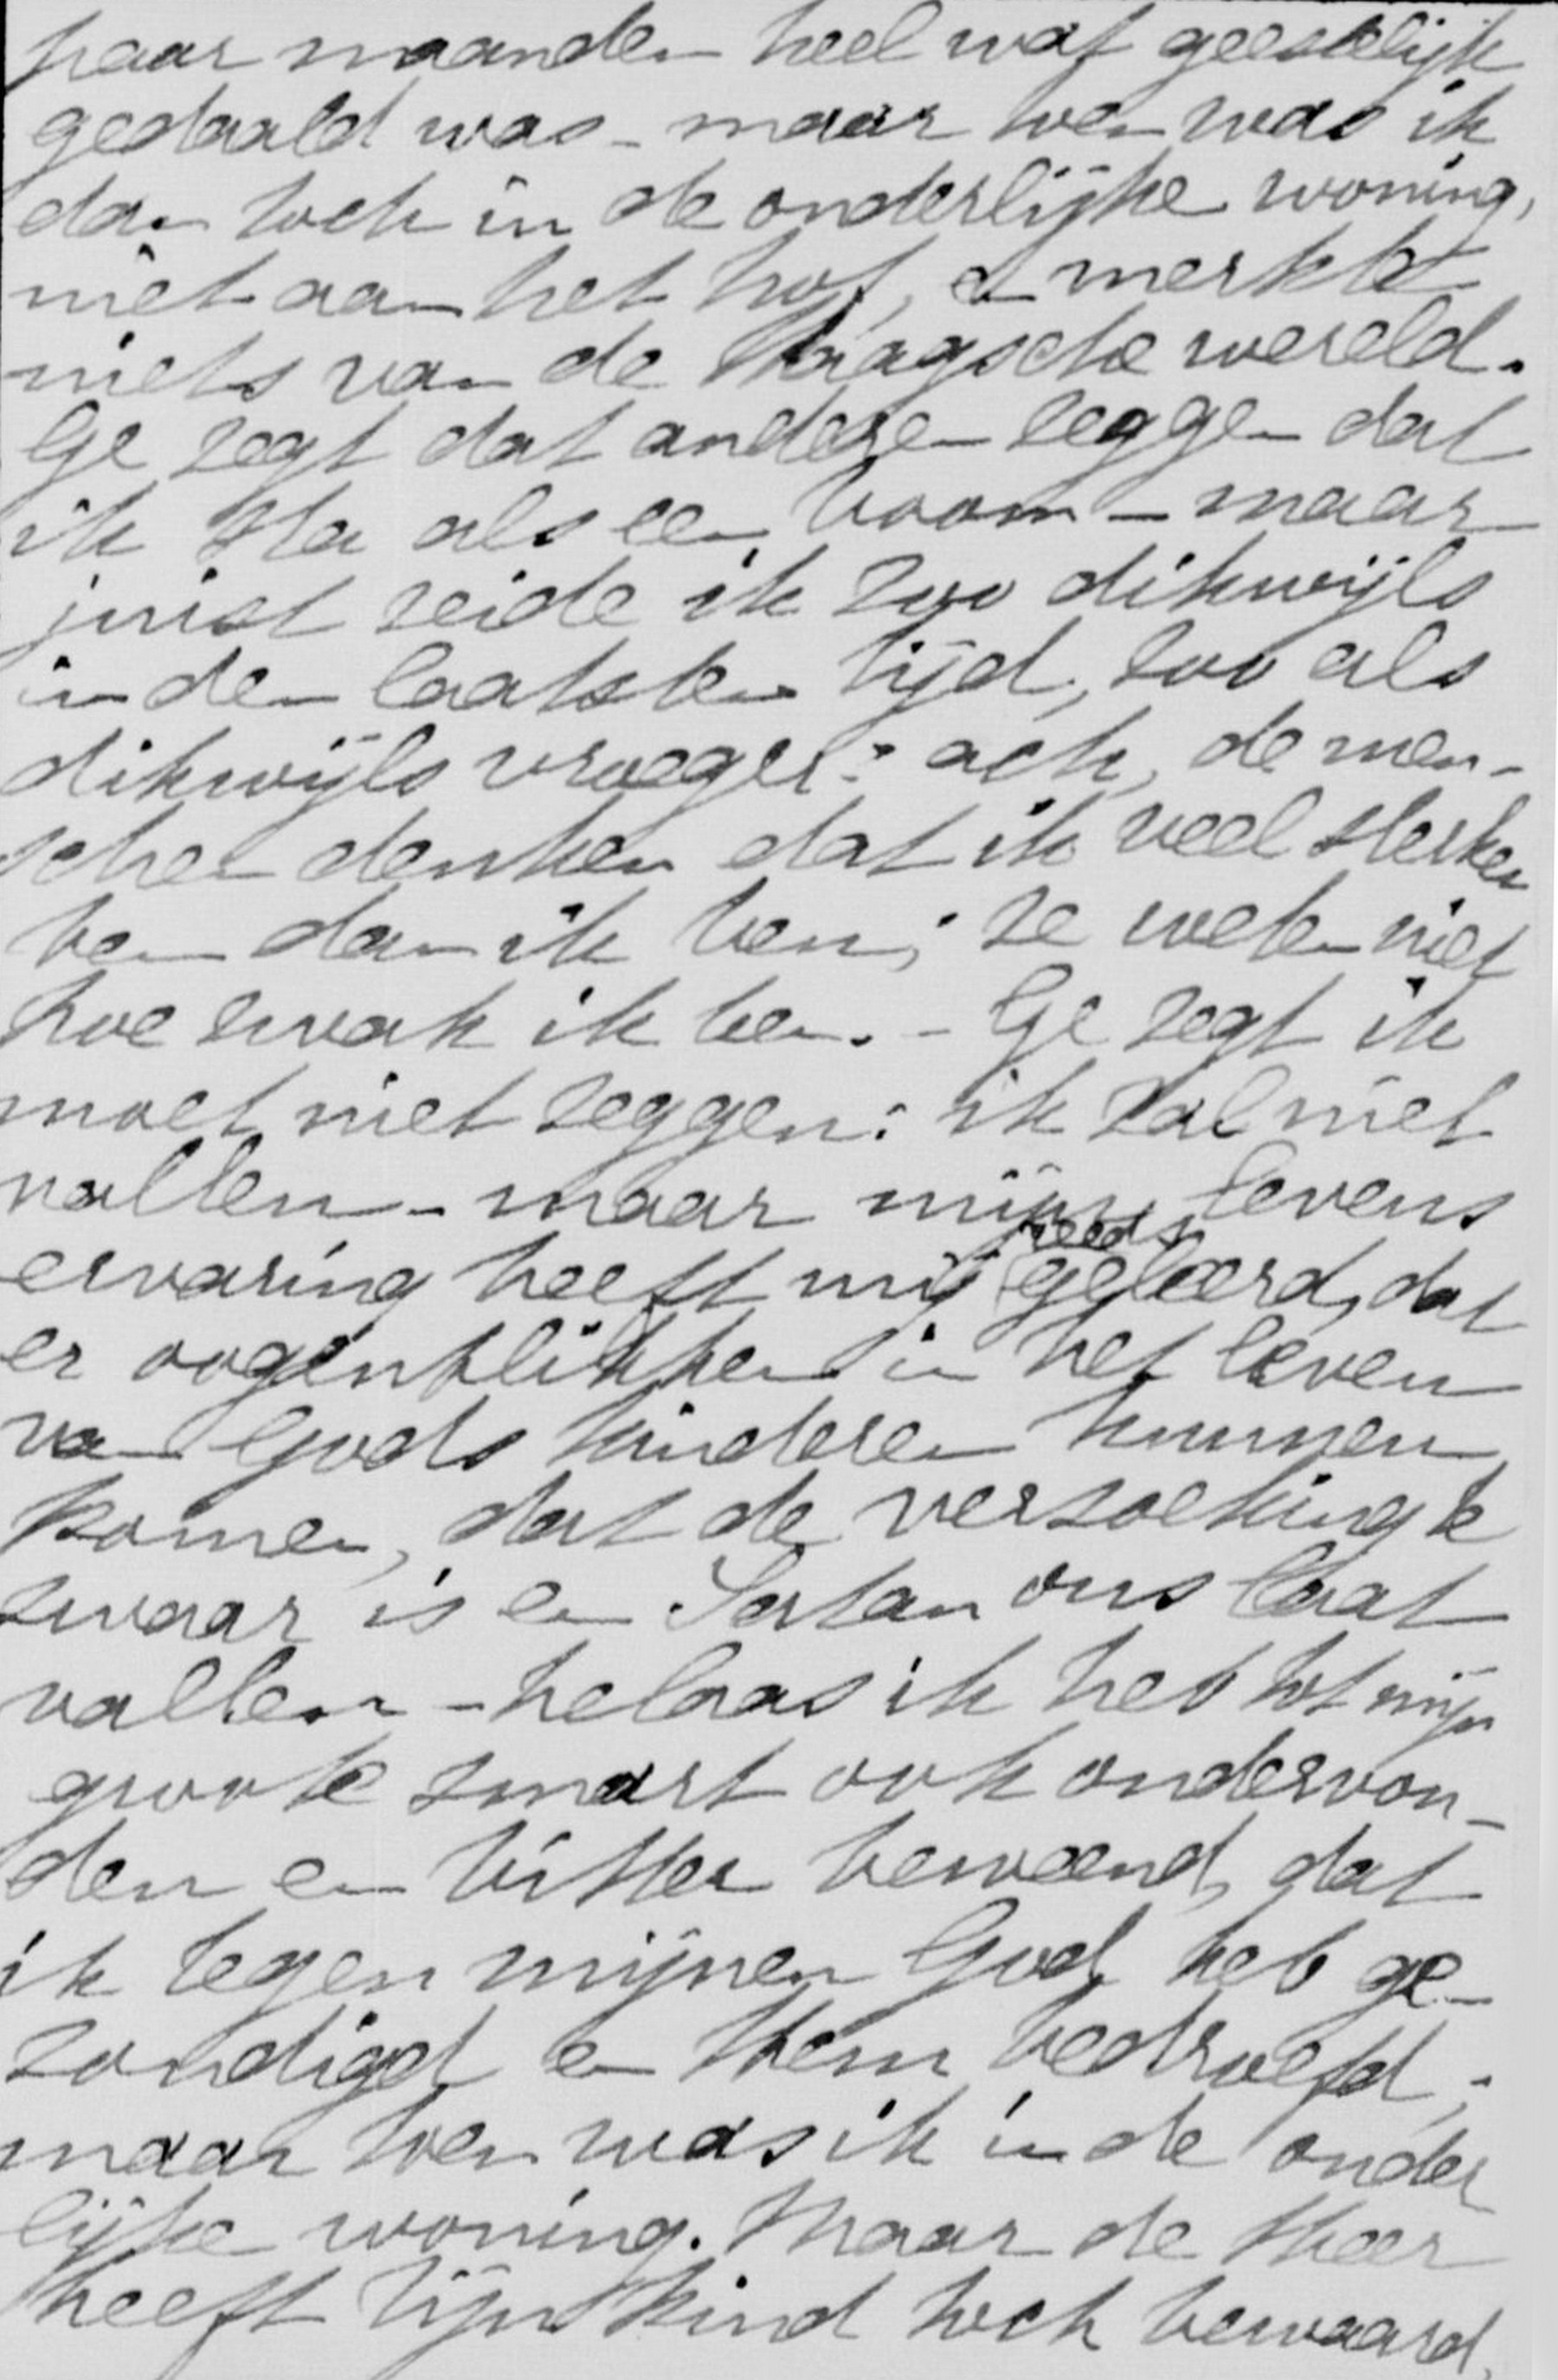 paar maanden heel wat geestelijk
gedaald was - maar toen was ik
dan toch in de onderlijke woning,
niet aan het hof, en merkte
niets van de Haagsche wereld.
Ge zegt dat anderen zeggen dat
ik sta als een boom - maar
juist zeide ik zoo dikwijls
in den laatsten tijd, zoo als
dikwijls vroeger: ach, de men-
schen denken dat ik veel sterker
ben dan ik ben; ze weten niet
hoe zwak ik ben. - Ge zegt ik
moet niet zeggen: ik zal niet
vallen - maar mijn levens
ervaring heeft mij reeds geleerd, dat
er oogenblikken in het leven
van Gods kinderen kunnen
komen, dat de verzoeking te
zwaar is en Satan ons laat
vallen - helaas ik heb tot mijn
groote smart ook ondervon-
den en bitter beweend, dat
ik tegen mijnen God heb ge-
zondigd en Hem bedroefd;
maar toen was ik in de onder
lijke woning. Maar de Heer
heeft Zijn kind toch bewaard,